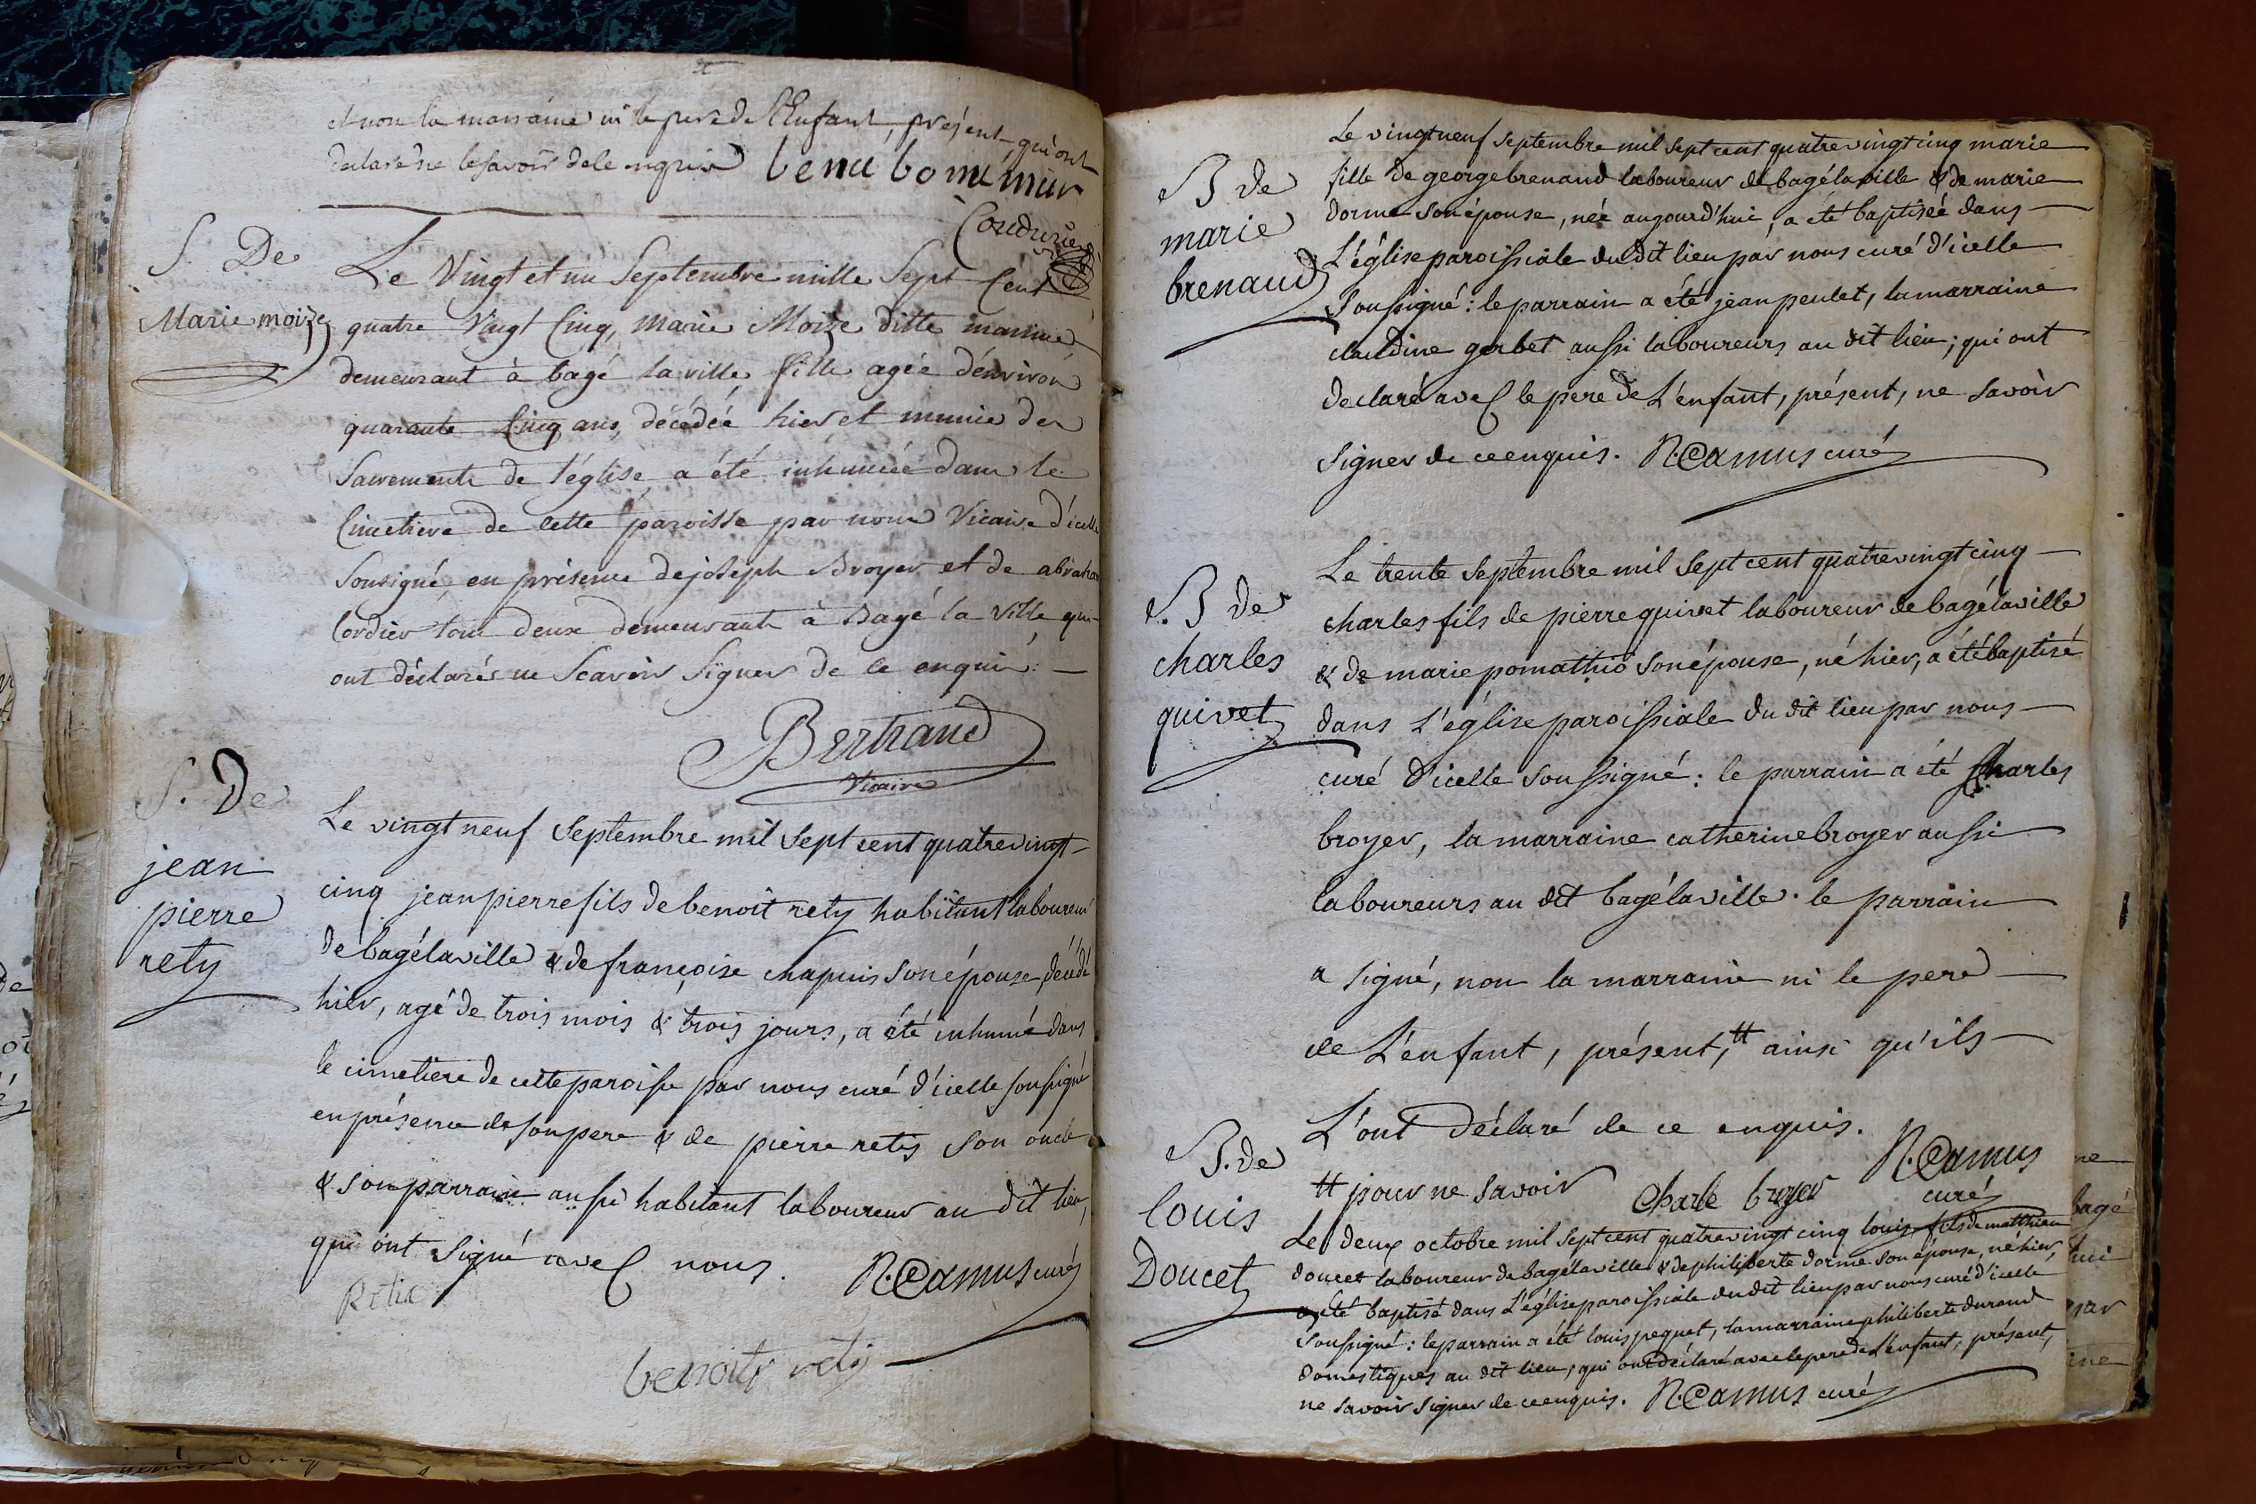 et non la marraine ni le pere de l'Enfant, présent, qui ont
declare ne le savoir de le enquis benu bonnemur
Condurier
S. De
Marie moize
Le Vingt et un Septembre mille Sept Cent
quatre Vingt Cinq, Marie Moize ditte manine
demeurant à bagé la ville fille agée d'énviron
quarante Cinq ans, décédée hier et munie des
Sacrements de l'église a été inhumée dans le
Cimetiere de cette paroisse par nous Vicaire d'icelle
Sousigné, en présence de joseph Broyer et de abraham
Cordier tous deux demeurants à Bagé la Ville qui
ont déclarés ne Scavoir Signer de ce enquis. —
Bertrand
Vicaire
S. De
jean
pierre
rety
Le vingt neuf Septembre mil Sept cent quatrevingt-
cinq jean pierre fils de benoit rety habitant laboureur
de bagélaville & de françoise chapuis son épouse, décédé
hier, agé de trois mois & trois jours, a été inhumé dans
le cimetiere de cette paroisse par nous curé d'icelle soussigné
en présence de son pere & de pierre retis son oncle
& son parrain aussi habitant laboureur au dit lieu,
qui ont signé avec nous. N. Camus curé
Retie
benoity rety
B de
marie
brenaud
Le vingt neuf septembre mil sept cent quatre vingt cinq marie
fille de george brenaud laboureur de bagélaville & de marie
dorme son épouse, née aujourd'hui, a été baptisée dans
L'église paroissiale du dit lieu par nous curé d'icelle
Soussigné: le parrain a été jean peulet, la marraine
claudine gerbet aussi laboureurs au dit lieu; qui ont
declaré avec le pere de L'enfant, présent, ne savoir
signer de ce enquis. N. Camus curé
B de
charles
quivet
Le trente Septembre mil Sept cent quatrevingt cinq
charles fils de pierre quivet laboureur de bagélaville
& de marie pomathio son épouse, né hier, a été baptisé
dans L'église paroissiale du dit lieu par nous
curé d'icelle soussigné: le parrain a été Charles
broyer, la marraine catherine broyer aussi
laboureurs au dit bagélaville. le parrain
a signé, non la marraine ni le pere
de L'enfant, présent, tt ainsi qu'ils
L'ont déclaré de ce enquis.
tt pour ne savoir Charle broyer N. Camus
curé
B. de
louis
Doucet
Le deux octobre mil sept cent quatrevingt cinq louis fils de matthieu
doucet laboureur de bagélaville & de philiberte dorme son épouse, né hier,
a été baptisé dans L'église paroissiale du dit lieu par nous curé d'icelle
soussigné: le parrain a été louis pequet, la marraine philiberte durand
domestiques au dit lieu, qui ont déclaré avec le pere de L'enfant, présent,
ne savoir signer de ce enquis. N. Camus curé